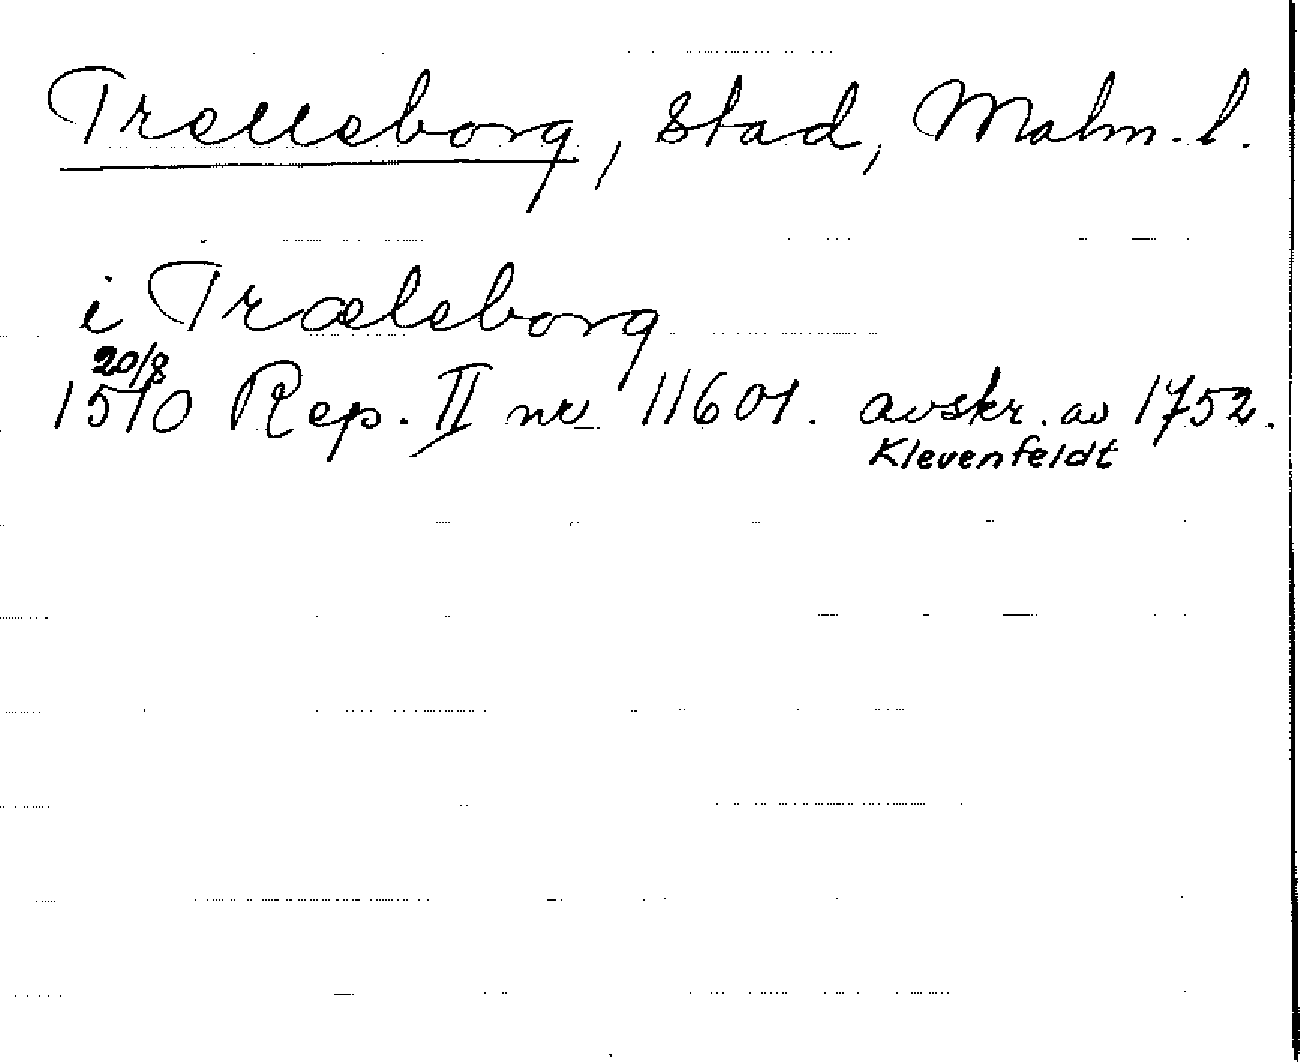 Trelleborg, stad, Malm. l.
i Træleborg
20/8
1510 Rep. II nr 11601. avskr. av 1752.
Klevenfeldt